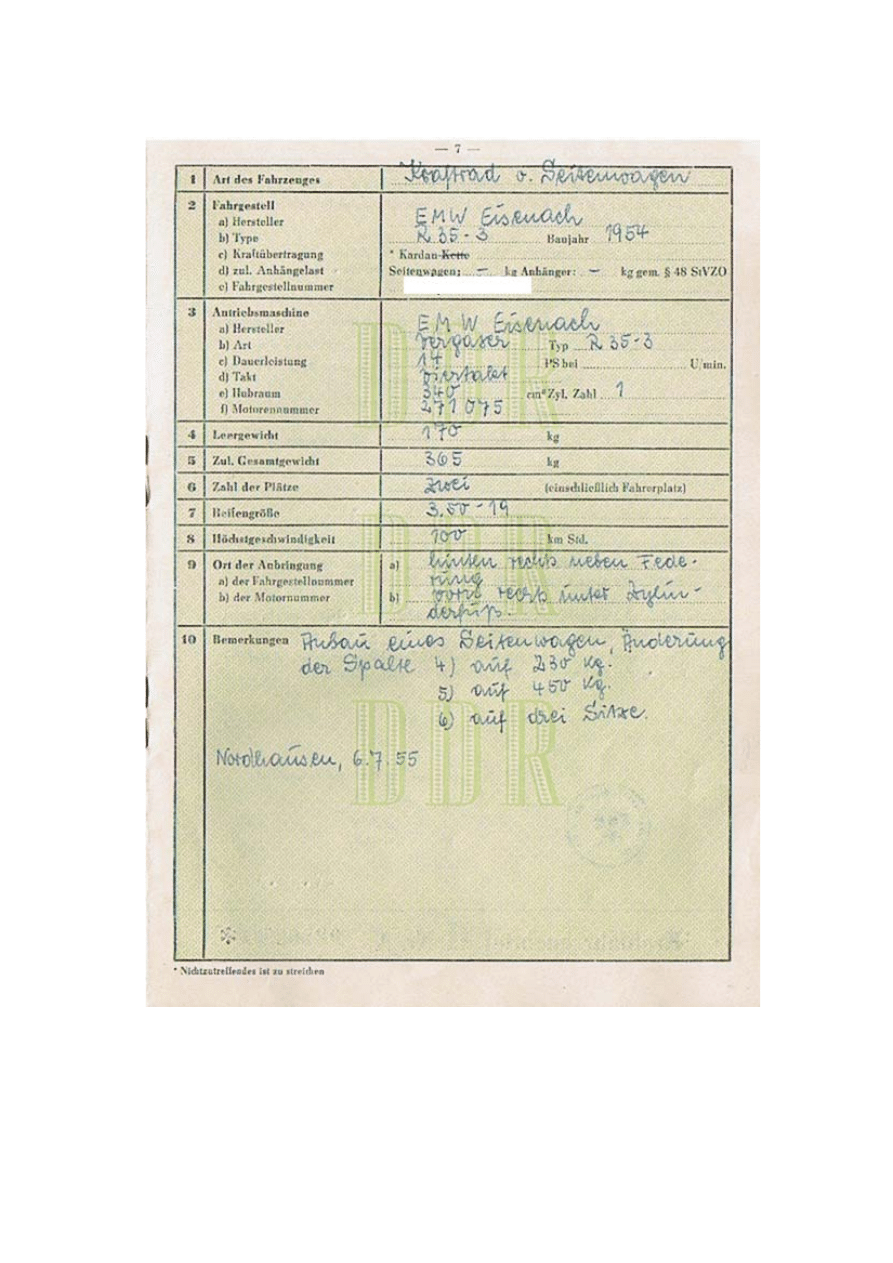 — 7 —
1 Art des Fahrzeuges Kraftrad o. Seitenwagen
2 Fahrgestell
a) Hersteller EMW Eisenach
b) Type R 35-3 Baujahr 1954
c) Kraftübertragung * Kardan-Kette
d) zul. Anhängelast Seitenwagen: – kg Anhänger: – kg gem. § 48 StVZO
e) Fahrgestellnummer
3 Antriebsmaschine
a) Hersteller EMW Eisenach
b) Art Vergaser Typ R 35-3
c) Dauerleistung 14 PS bei U/min.
d) Takt viertakt
e) Hubraum 340 cm³ Zyl. Zahl 1
f) Motorennummer 271075
4 Leergewicht 170 kg
5 Zul. Gesamtgewicht 365 kg
6 Zahl der Plätze zwei (einschließlich Fahrerplatz)
7 Reifengröße 3.50-19
8 Höchstgeschwindigkeit 100 km Std.
9 Ort der Anbringung a) hinten rechts neben Fede-
a) der Fahrgestellnummer rung
b) der Motornummer b) vorn rechts unter Zylin-
derfuß.
10 Bemerkungen Anbau eines Seitenwagen, Änderung
der Spalte 4) auf 230 kg.
5) auf 450 kg.
6) auf drei Sitze.
Nordhausen, 6.7.55
DDR
DDR
DDR
* Nichtzutreffendes ist zu streichen